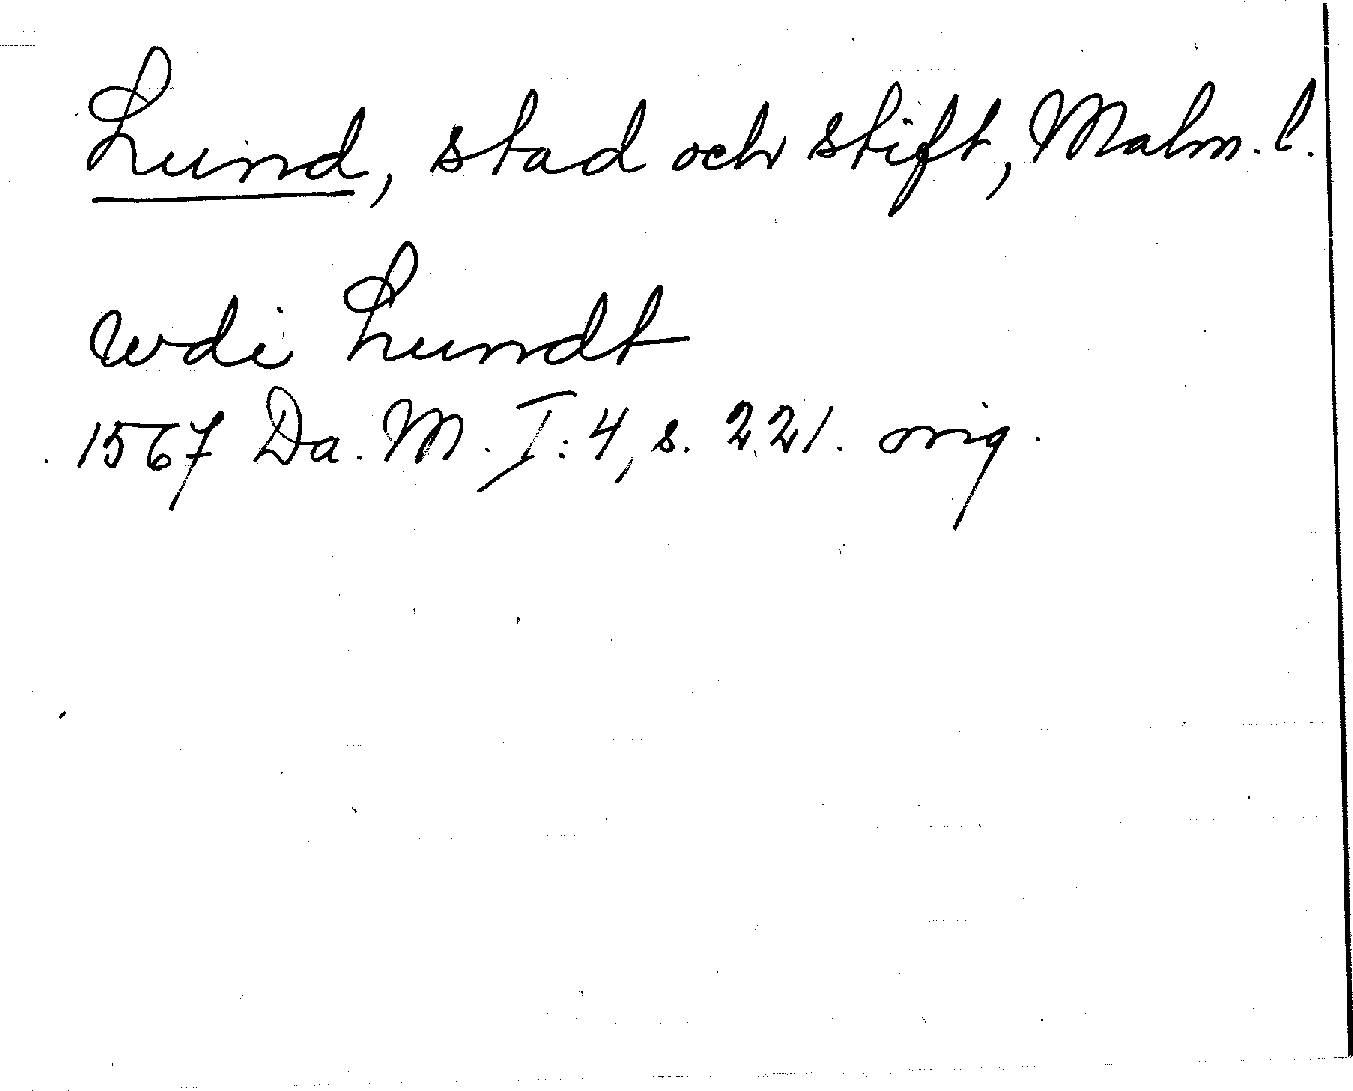 Lund, stad och stift, Malm. l.
wdi Lundt
1567 Da. M. I: 4, s. 221. orig.